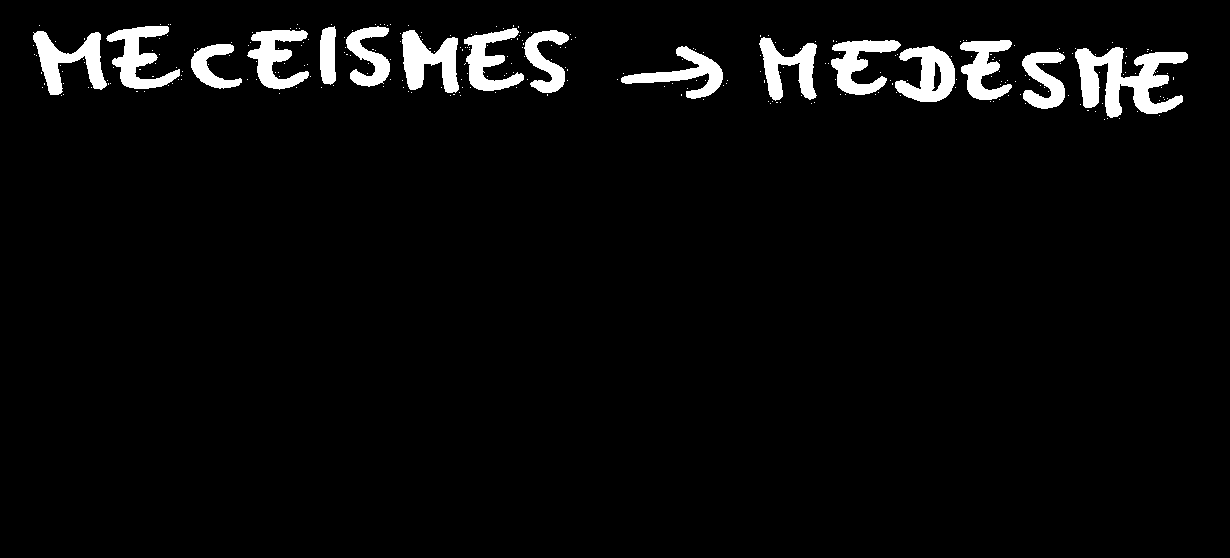 MECEISMES → MEDESME